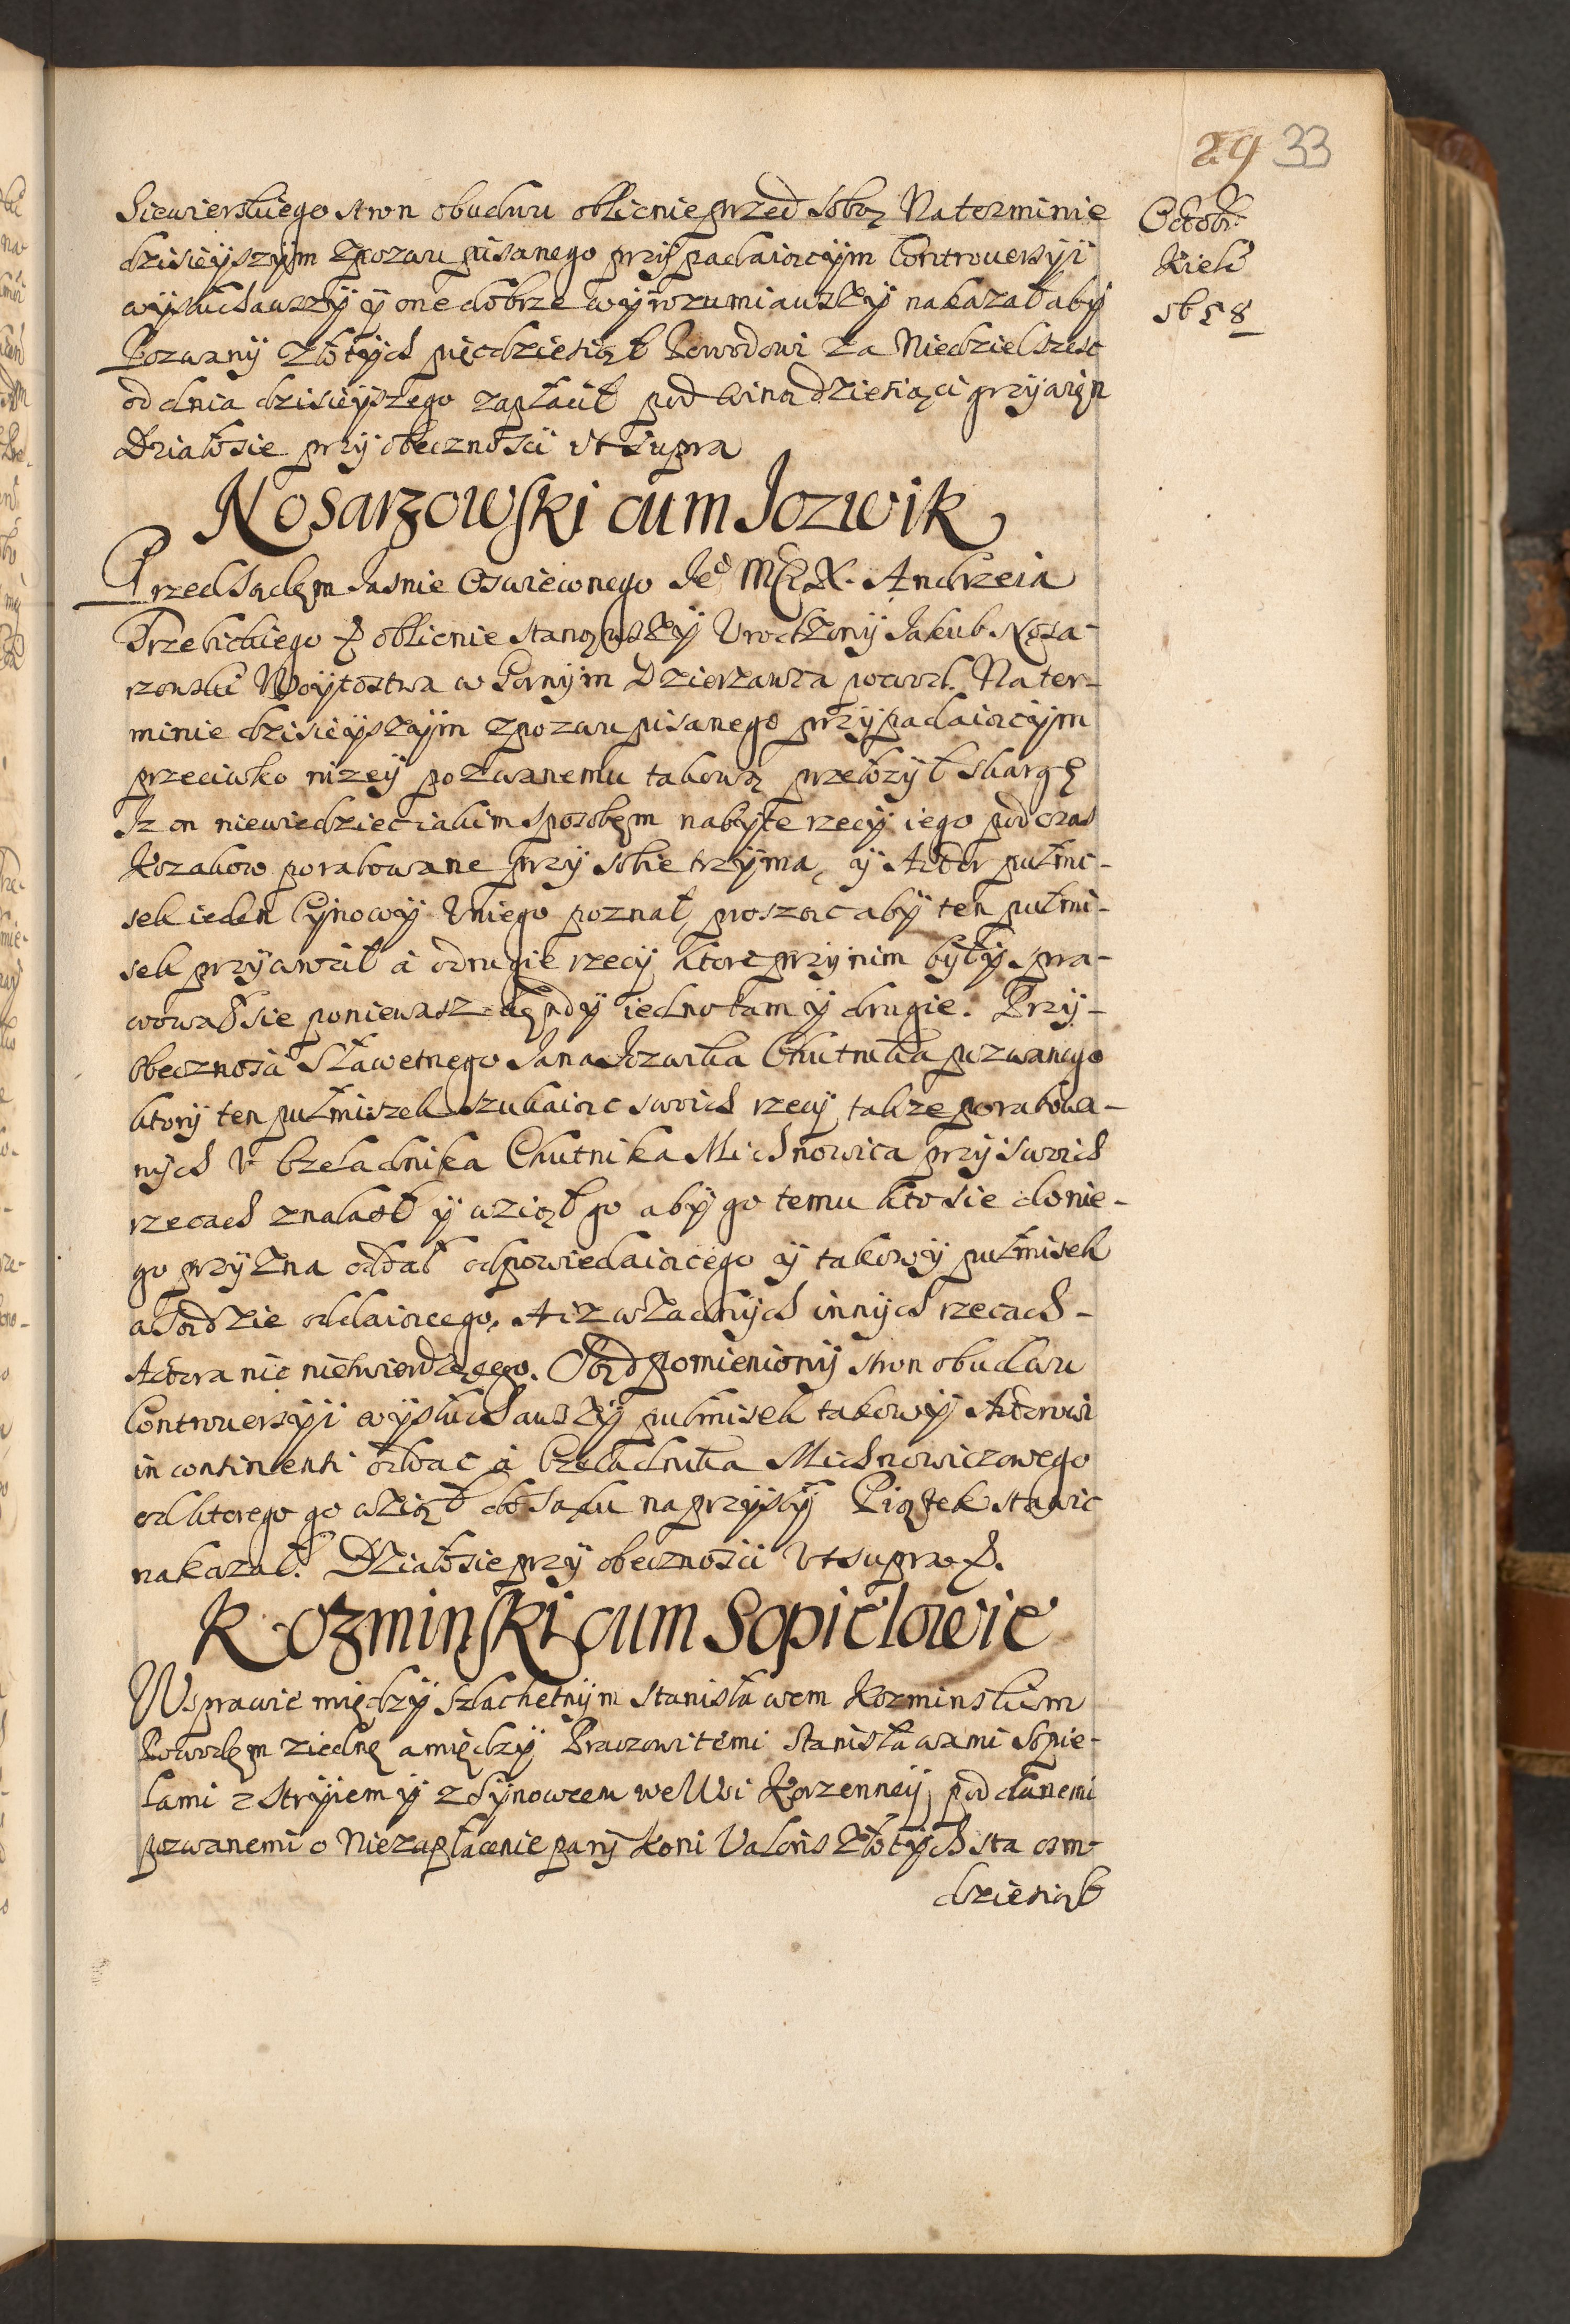 29 33
Siewierskiego stron obudwu oblicnie przed sobą Na terminie
dzisieÿszÿm z pozwu pisanego przÿpadaiącÿm Controuersÿi
wÿsłuchawszÿ ÿ one dobrze wÿrozumiawszÿ nakazał abÿ
Pozwanÿ złotÿch pięcdziesiąt Powodowi za Niedziel szesc
od dnia dzisieÿszego zapłacił pod winą dziesiąci grzÿwięn
Działosie przÿ obecznosci Vt supra
Octobr:
Kielc
1658
Nosarzowski cum Jozwik
Przed Sądęm Jasnie Oswieconego Je° Mci X. Andrzeia
Trzebickiego & oblicnie stanąwszÿ Vrodzonÿ Jakub Nosa-
rzowski Woÿtostwa w Gornÿm Dzierzawca powod. Na ter-
minie dzisieÿszÿm z pozwu pisanego przÿpadaiącÿm
przeciwko nizeÿ pozwanemu takową przełozÿł skargę
Iz on niewiedziec iakim sposobęm nabÿte rzecÿ iego pod czas
Kozakow porabowane przÿ sobie trzÿma, ÿ Actor pułmi-
sek ieden Cÿnowÿ Vniego poznał, prosząc abÿ ten pułmi-
sek przÿwrał a o drugie rzecÿ ktore przÿ nim bÿłÿ spra-
wował sie poniewasz kędÿ iedno tam ÿ drugie. Przÿ-
obecznosci Sławetnego Jana Jozwika Chutnika pozwanego
ktorÿ ten pułmiszek szukaiąc swoich rzecÿ takze porabowa-
nÿch V Czeladnika Chutnika Michnowica przÿ swoich
rzecach znalasł ÿ wziął go abÿ go temu kto sie do nie-
go przÿzna oddał odpowiedaiącego ÿ takowÿ pułmisek
w Sądzie oddaiącego. A iz w zadnÿch innÿch rzecach
Actora nic nietwierdzącego. Sąd pomienionÿ stron obudwu
Controuersÿi wÿsłuchawszÿ pułmisek takowÿ Actorowi
in continenti oddac a Czeladnika Michnowiczowego
od ktorego go wziął do Sądu na przÿszłÿ Piątek stawic
nakazał. Działosie przÿ obecznosci Vt supra &.
Kozminski cum Sopielowie
W sprawie międzÿ szlachetnÿm Stanisławem Kozminskim
Powodęm z iednę a międzÿ Praczowitemi Stanisławami Sopie-
lami z Strÿiem ÿ z Sÿnowcem we Wsi Korzenneÿ poddanemi
pozwanemi o Niezapłacenie parÿ Koni Valoris złotÿch sta osm-
dziesiąt